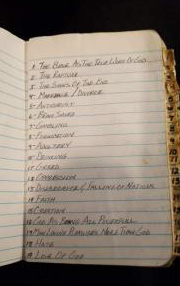 1- The Bible As The True Word Of God
2- The Rapture
3- The Signs Of The End
4- Marriage / Divorce
5- Antichrist
6- Being Saved
7- Gambling
8- Fornication
9- Adultery
10- Drinking
11- Cursed
12- Catholicism
13- Disobedience & Falling Of Nations
14- Faith
15- Creation
16- God As Being All Powerful
17- Man Loving Pleasures More Than God
18- Hope
19- Love Of God